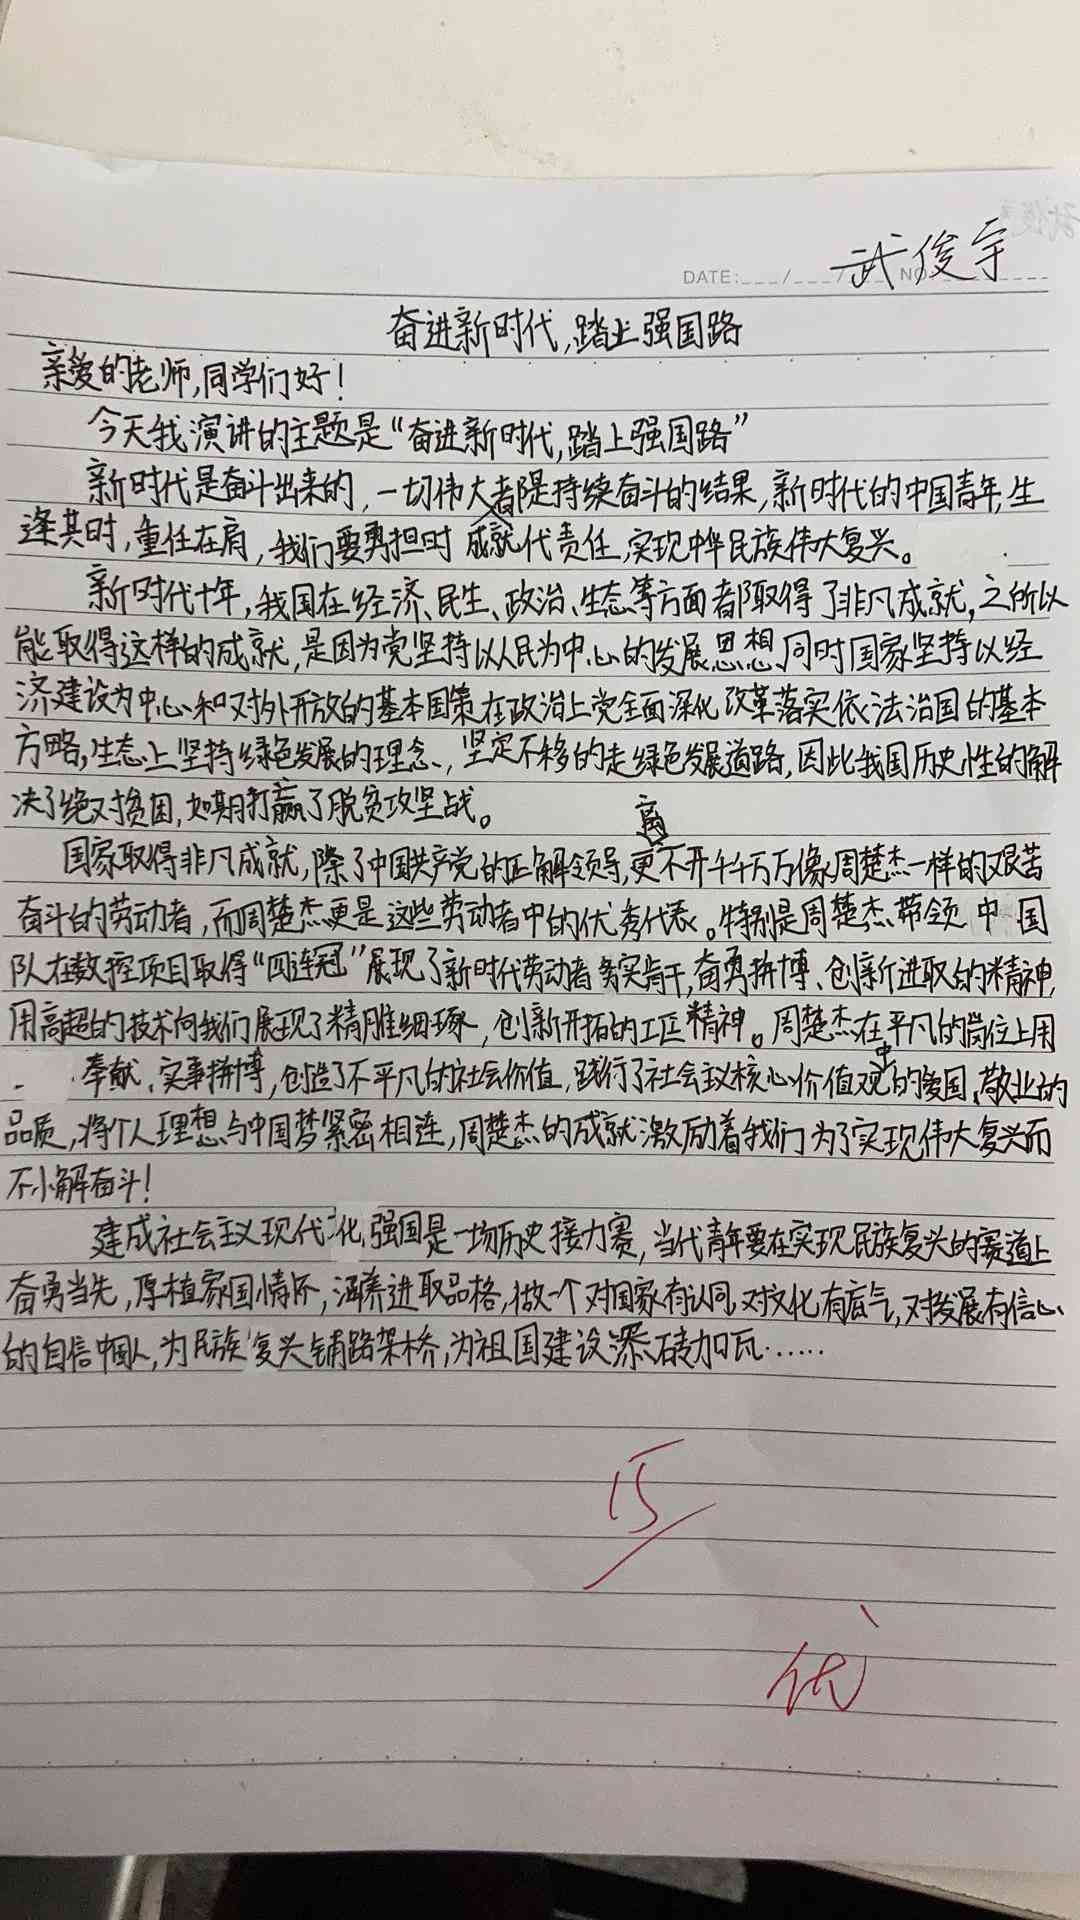 武俊宇
DATE: / / NO.
奋进新时代,踏上强国路
亲爱的老师,同学们好!
今天我演讲的主题是“奋进新时代,踏上强国路”
新时代是奋斗出来的,一切伟大者都是持续奋斗的结果,新时代的中国青年,生
逢其时,重任在肩,我们要勇担时 成就代责任,实现中华民族伟大复兴。
新时代十年,我国在经济、民生、政治、生态等方面都取得了非凡成就,之所以
能取得这样的成就,是因为党坚持以人民为中心的发展思想,同时国家坚持以经
济建设为中心和对外开放的基本国策在政治上党全面深化改革落实依法治国的基本
方略,生态上坚持绿色发展的理念、,坚定不移的走绿色发展道路,因此我国历史性的解
决了绝对贫困,如期打赢了脱贫攻坚战。
国家取得非凡成就,除了中国共产党的正解领导,更离不开千千万万像周楚杰一样的艰苦
奋斗的劳动者,而周楚杰更是这些劳动者中的优秀代表。特别是周楚杰带领中国
队在数控项目取得“四连冠”展现了新时代劳动者务实肯干,奋勇拼搏、创新进取的精神,
用高超的技术向我们展现了精雕细琢,创新开拓的工匠精神。周楚杰在平凡的岗位上用
奉献、实事拼搏,创造了不平凡的社会价值,践行了社会主义核心价值观中的爱国、敬业的
品质,将个人理想与中国梦紧密相连,周楚杰的成就激励着我们为了实现伟大复兴而
不小解奋斗!
建成社会主义现代化强国是一场历史接力赛,当代青年要在实现民族复兴的赛道上
奋勇当先,厚植家国情怀,涵养进取品格,做一个对国家有认同,对文化有底气,对发展有信心
的自信中国人,为民族复兴铺路架桥,为祖国建设添砖加瓦······
15
优